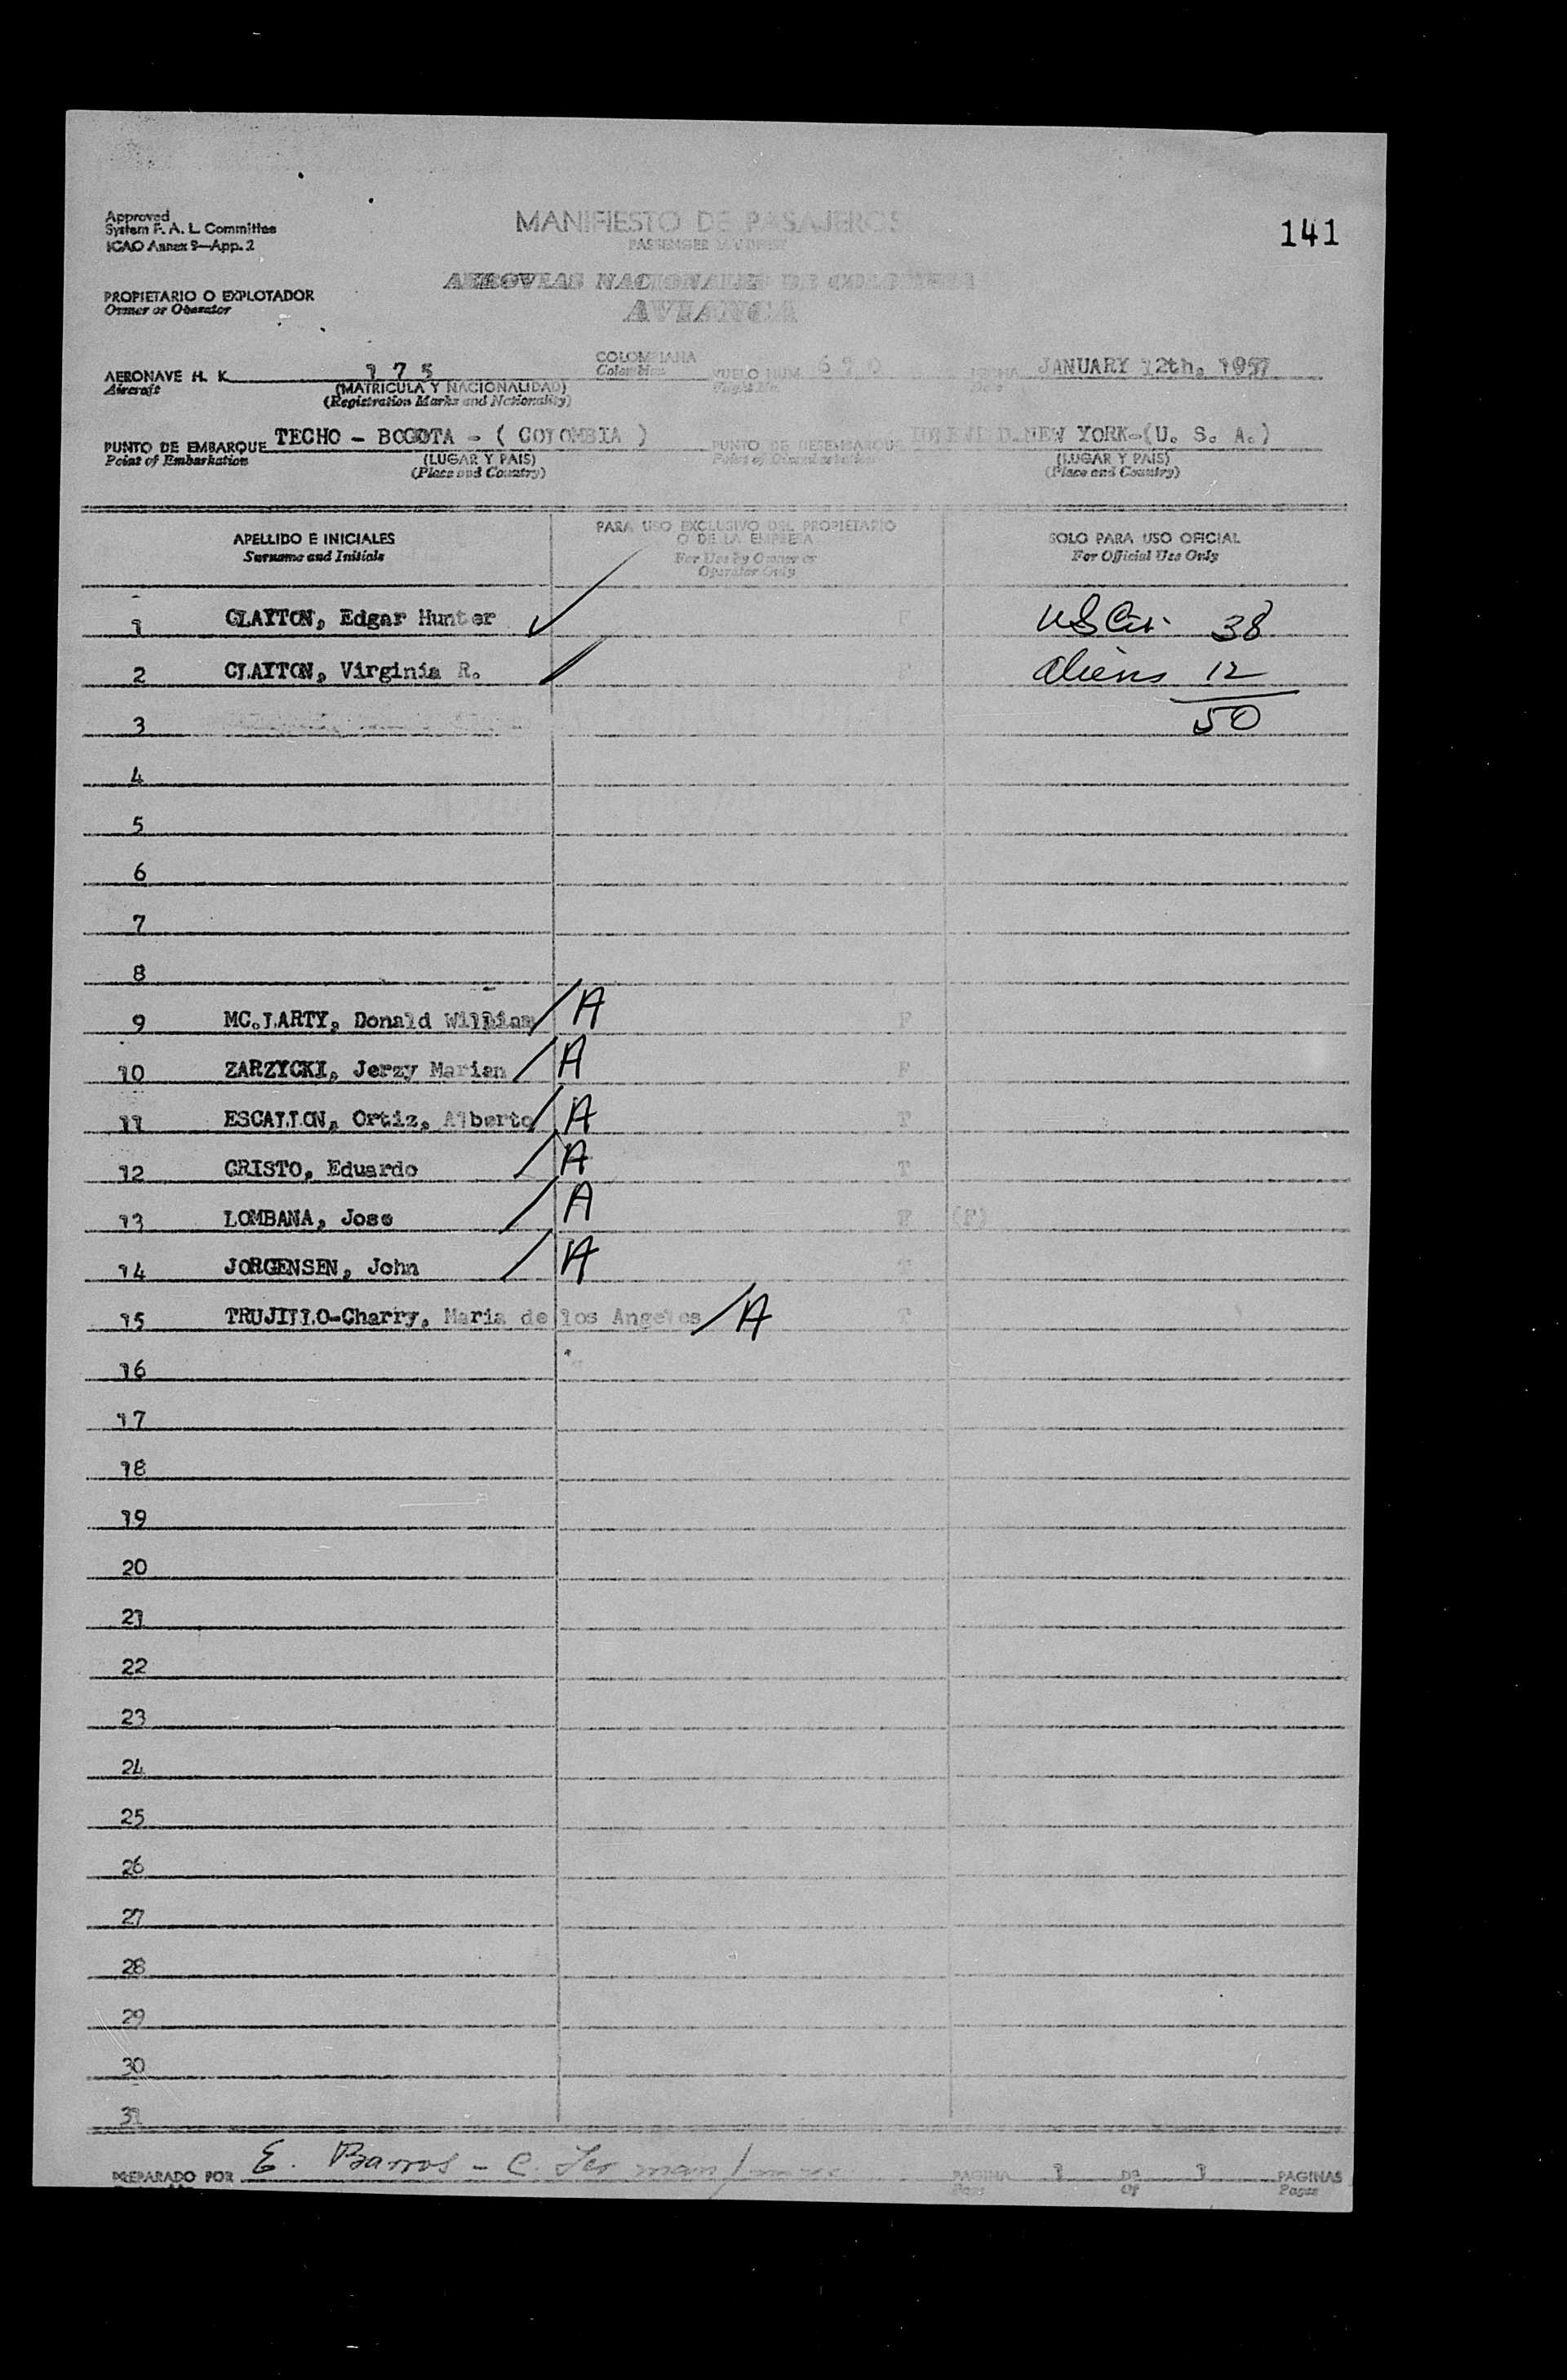 Approved
System F. A. L. Committee
ICAO Annex 9—App. 2
MANIFIESTO DE PASAJEROS
PASSENGER MANIFEST
141
AEROVIAS NACIONALES DE COLOMBIA
AVIANCA
PROPIETARIO O EXPLOTADOR
Owner or Operator
AERONAVE H. K. 175 COLOMBIANA VUELO NUM. 670 FECHA JANUARY 12th, 1957
Aircraft (MATRICULA Y NACIONALIDAD) Colombian Flight No. Date
(Registration Marks and Nationality)
PUNTO DE EMBARQUE TECHO - BOGOTA - ( COLOMBIA ) PUNTO DE DESEMBARQUE IDLEWILD-NEW YORK-(U. S. A.)
Point of Embarkation (LUGAR Y PAIS) Point of Disembarkation (LUGAR Y PAIS)
(Place and Country) (Place and Country)
APELLIDO E INICIALES PARA USO EXCLUSIVO DEL PROPIETARIO O DE LA EMPRESA SOLO PARA USO OFICIAL
Surname and Initials For Use by Owner or Operator Only For Official Use Only
1 CLAYTON, Edgar Hunter US Cit. 38
2 CLAYTON, Virginia R. F Aliens 12
3 50
4
5
6
7
8
9 MC.LARTY, Donald William A F
10 ZARZYCKI, Jerzy Marian A F
11 ESCALLON, Ortiz, Alberto A T
12 CRISTO, Eduardo A T
13 LOMBANA, Jose A F (F)
14 JORGENSEN, John A T
15 TRUJILLO-Charry, Maria de los Angeles A T
16
17
18
19
20
21
22
23
24
25
26
27
28
29
30
31
PREPARADO POR E. Barros - C. PAGINA 1 DE 1 PAGINAS
Page Of Pages